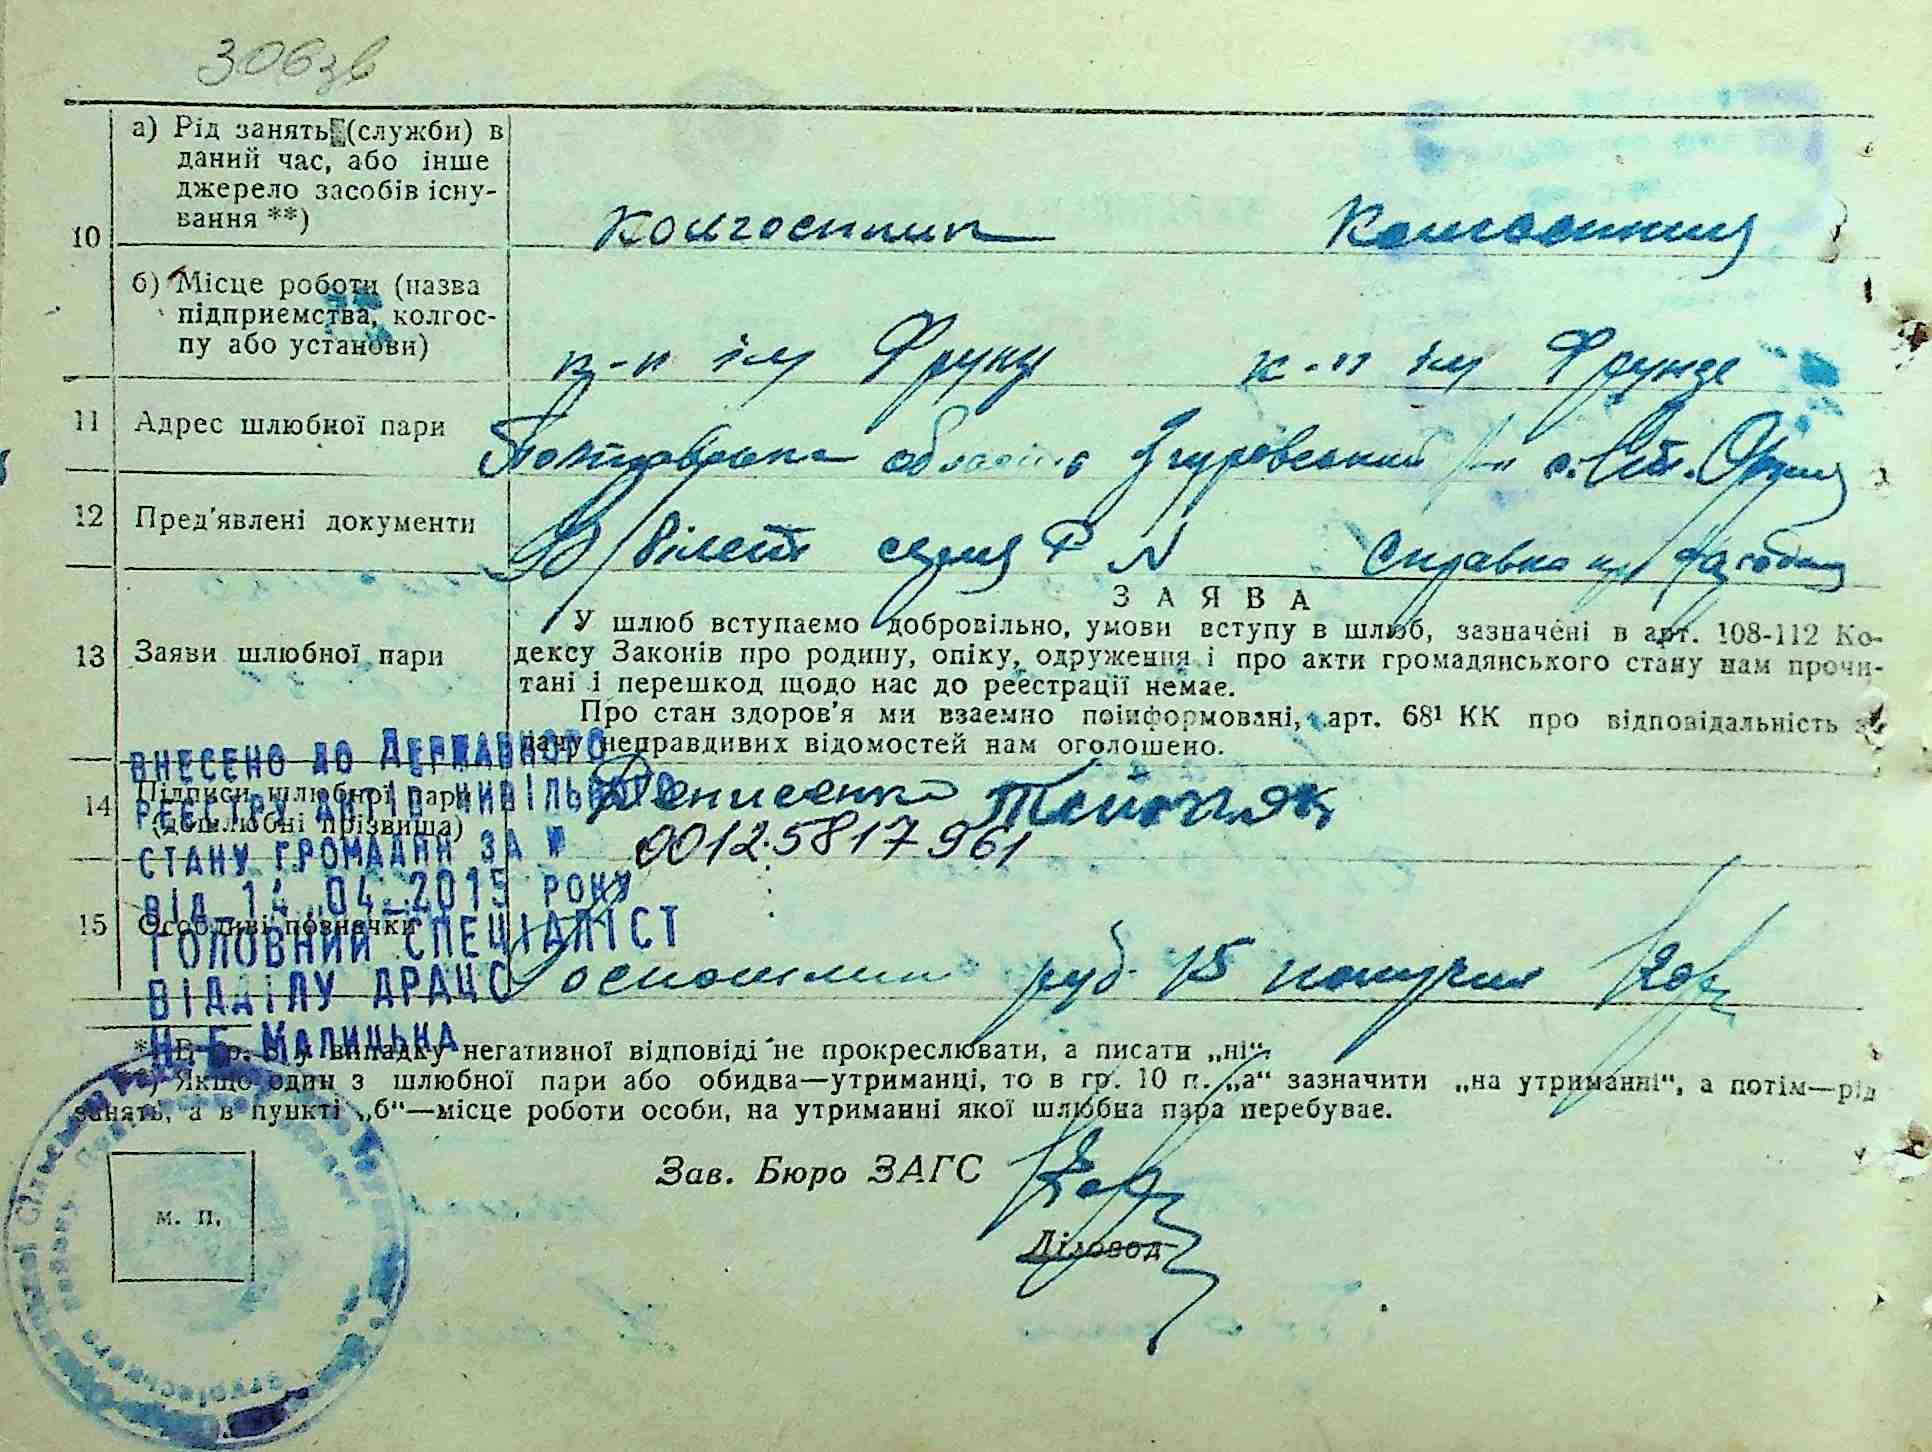 306зв
10
а) Рід занять (служби) в
даний час, або інше
джерело засобів існу-
вання **)
колгоспник колгоспниця
б) Місце роботи (назва
підприємства, колгос-
пу або установи)
к-п ім Фрунзе к-п ім Фрунзе
11 Адрес шлюбної пари
Полтавська область Згурівський с. Ст. Оржиця
12 Пред'явлені документи
В/білет серия Р N Справка
ЗАЯВА
13 Заяви шлюбної пари
У шлюб вступаємо добровільно, умови вступу в шлюб, зазначені в арт. 108-112 Ко-
дексу Законів про родину, опіку, одруження і про акти громадянського стану нам прочи-
тані і перешкод щодо нас до реєстрації немає.
Про стан здоров'я ми взаємно поінформовані, арт. 68¹ КК про відповідальність за
дачу неправдивих відомостей нам оголошено.
14 Підписи шлюбної пари
(дошлюбні прізвища)
Денисенко
ВНЕСЕНО ДО ДЕРЖАВНОГО
РЕЄСТРУ АКТІВ ЦИВІЛЬНОГО
СТАНУ ГРОМАДЯН ЗА №
00125817961
ВІД 14.04.2015 РОКУ
ГОЛОВНИЙ СПЕЦІАЛІСТ
ВІДДІЛУ ДРАЦС
Н.Б. МАЛИЦЬКА
15 Особливі позначки
Госпошлин руб. 15 получил
*) В гр. у випадку негативної відповіді не прокреслювати, а писати „ні“.
**) Якщо один з шлюбної пари або обидва—утриманці, то в гр. 10 п. „а“ зазначити „на утриманні“, а потім—рід
занять, а в пункті „б“—місце роботи особи, на утриманні якої шлюбна пара перебуває.
Зав. Бюро ЗАГС
Діловод
м. п.